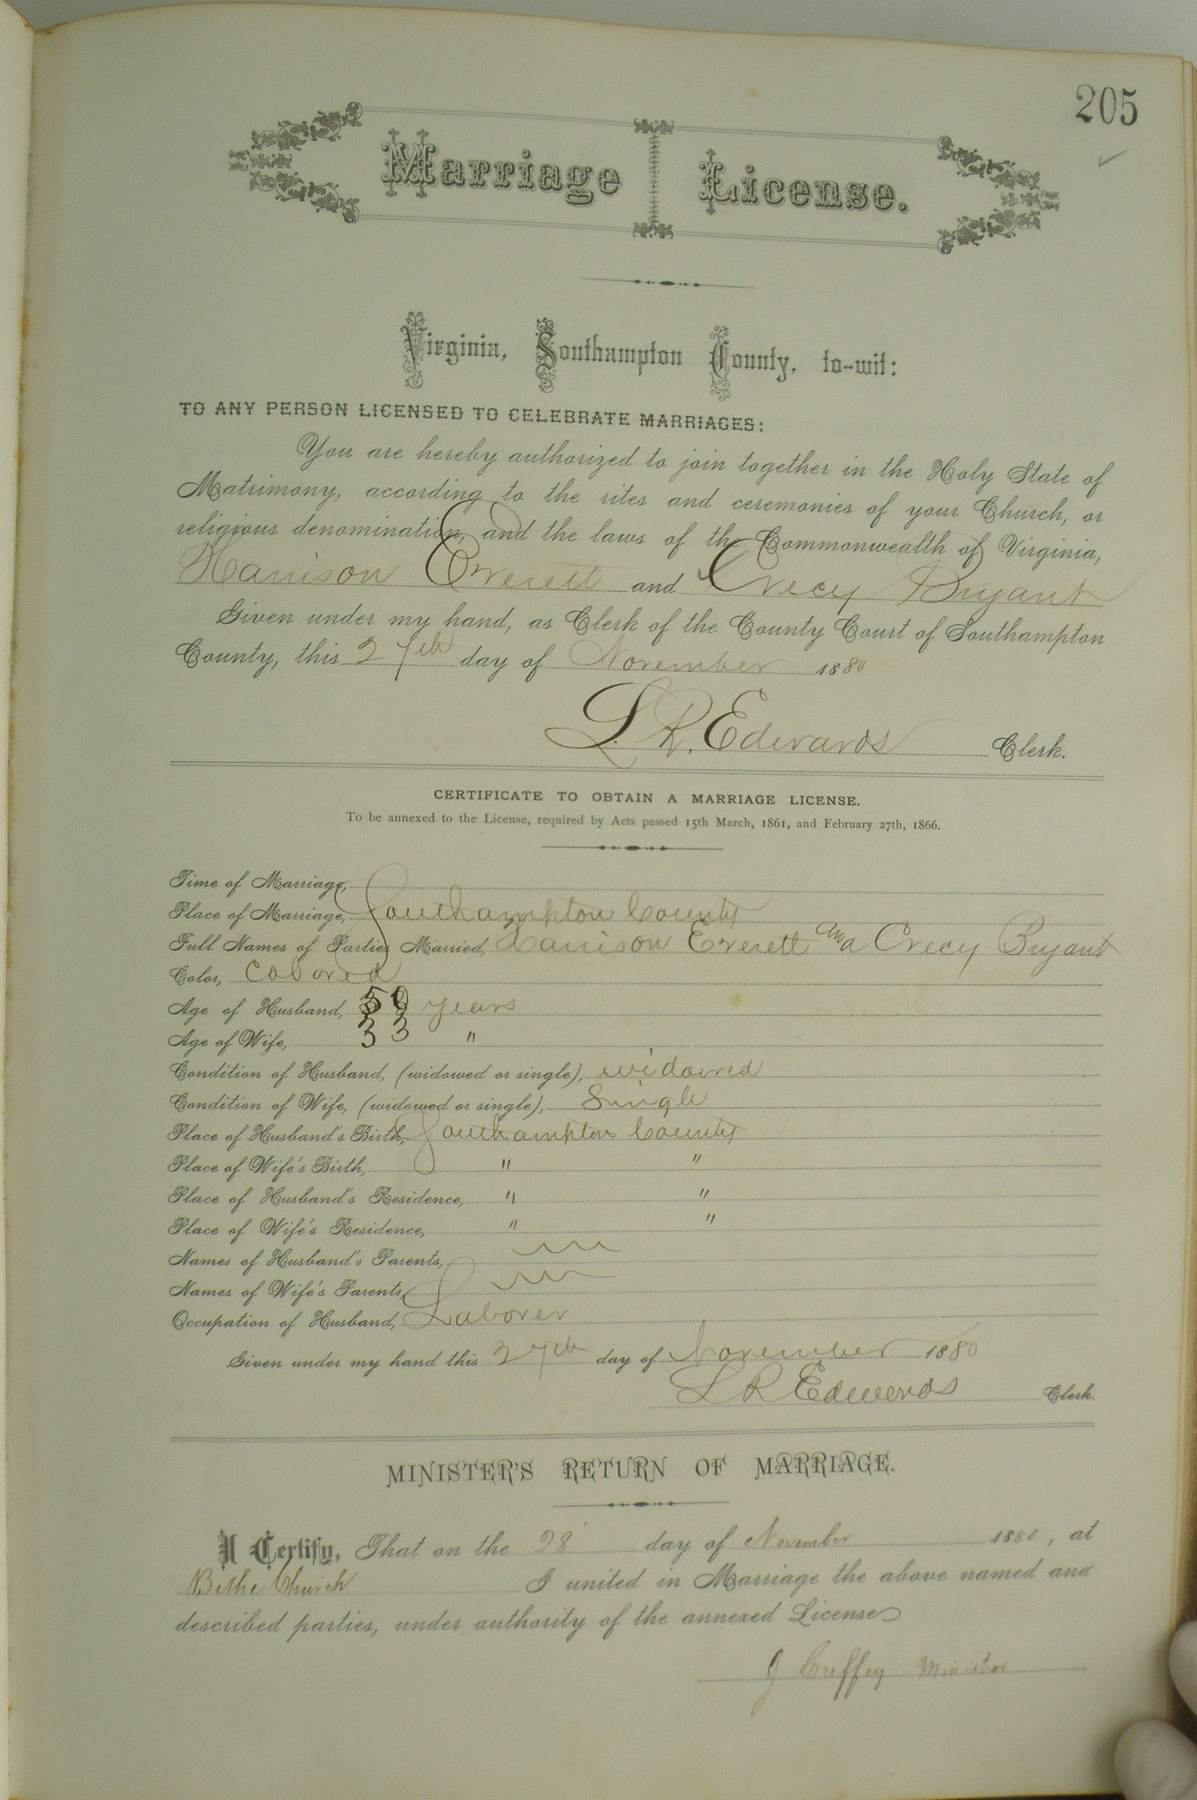 205
Marriage License.
Virginia, Southampton County, to-wit:
TO ANY PERSON LICENSED TO CELEBRATE MARRIAGES:
You are hereby authorized to join together in the Holy State of
Matrimony, according to the rites and ceremonies of your Church, or
religious denomination, and the laws of the Commonwealth of Virginia,
Harrison Everett and Crecy Bryant
Given under my hand, as Clerk of the County Court of Southampton
County, this 27th day of November 1880
L. R. Edwards Clerk.
CERTIFICATE TO OBTAIN A MARRIAGE LICENSE.
To be annexed to the License, required by Acts passed 15th March, 1861, and February 27th, 1866.
Time of Marriage,
Place of Marriage, Southampton County
Full Names of Parties Married, Harrison Everett and Crecy Bryant
Color, Colored
Age of Husband, 50 years
Age of Wife, 33 "
Condition of Husband, (widowed or single), widowed
Condition of Wife, (widowed or single), Single
Place of Husband's Birth, Southampton County
Place of Wife's Birth, " "
Place of Husband's Residence, " "
Place of Wife's Residence, " "
Names of Husband's Parents,
Names of Wife's Parents,
Occupation of Husband, Laborer
Given under my hand this 27th day of November 1880
L R Edwards Clerk.
MINISTER'S RETURN OF MARRIAGE.
I Certify, That on the 28 day of November 1880, at
Bethe Church I united in Marriage the above named and
described parties, under authority of the annexed License
J Cuffey Minister